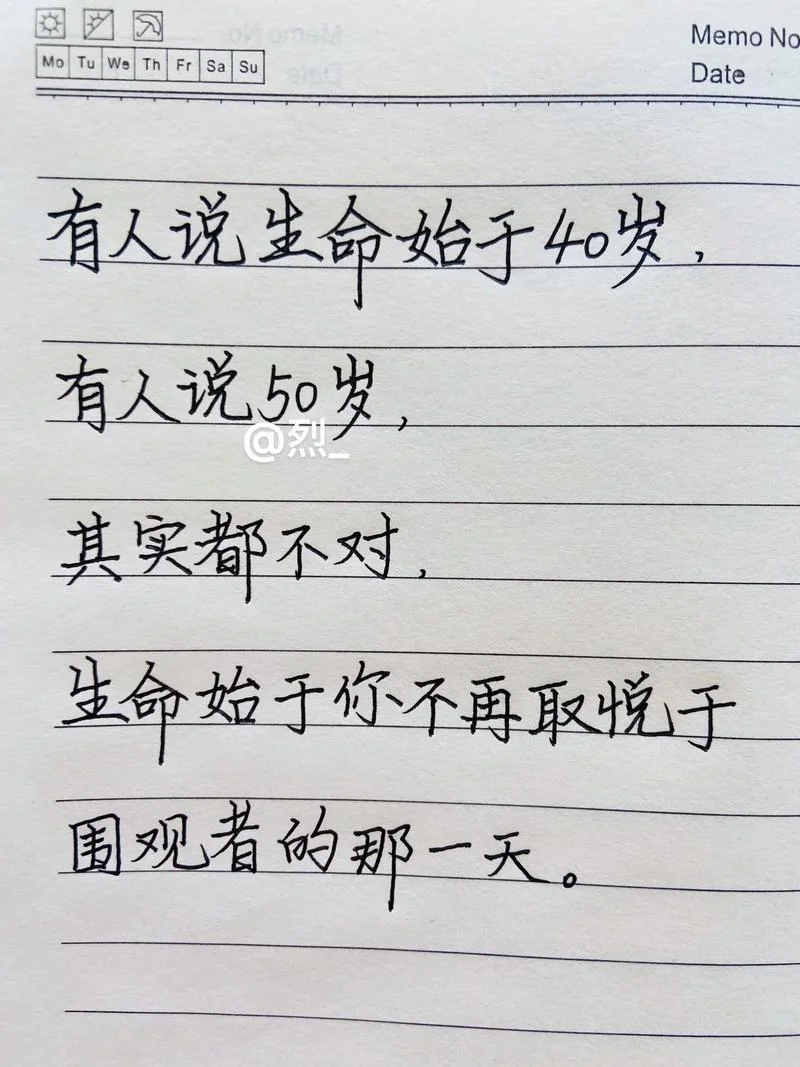 Memo No
Date
Mo Tu We Th Fr Sa Su
有人说生命始于40岁,
有人说50岁,
@烈_
其实都不对,
生命始于你不再取悦于
围观者的那一天。